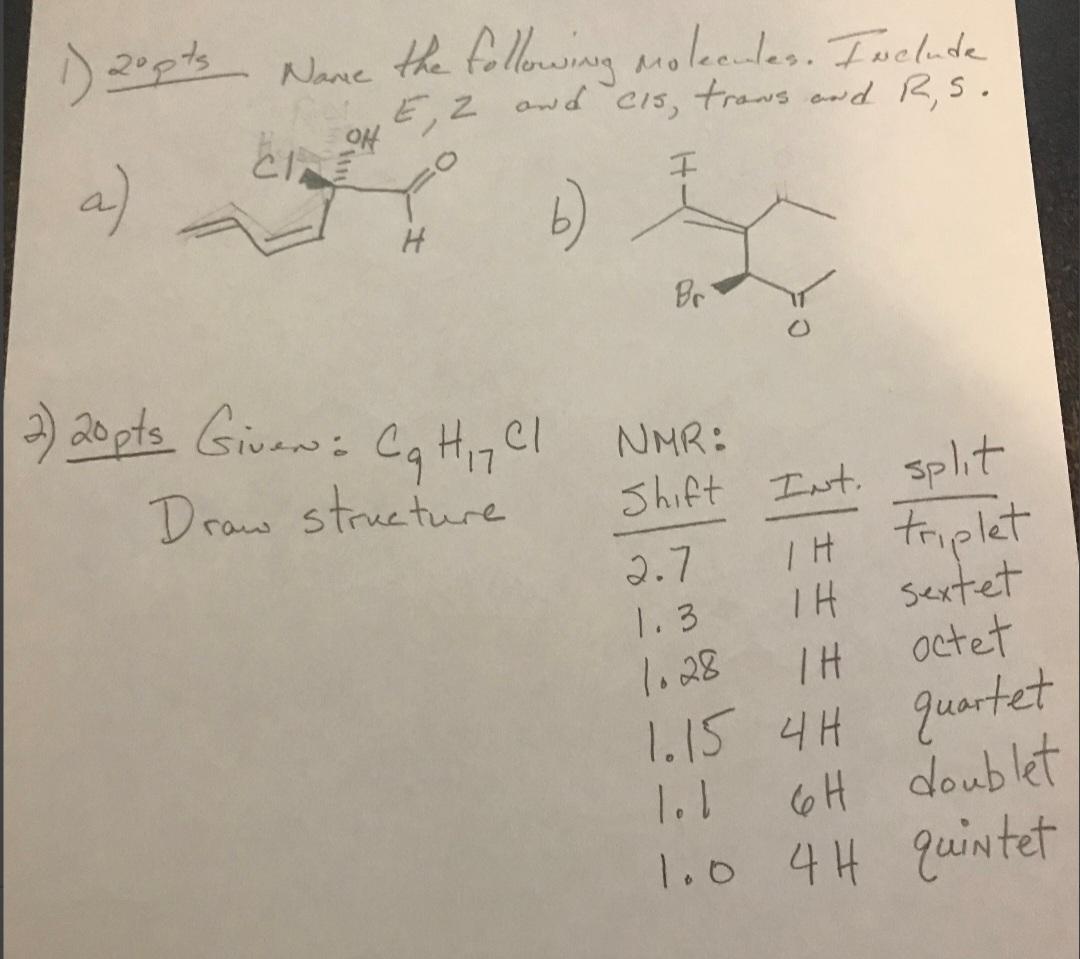 1) 20pts Name the following molecules. Include
E, Z and cis, trans and R, S.
a)
Cl
OH
O
H
b)
I
Br
O
2) 20pts Given: C9H17Cl
Draw structure
NMR:
Shift Int. split
2.7 1H triplet
1.3 1H sextet
1.28 1H octet
1.15 4H quartet
1.1 6H doublet
1.0 4H quintet